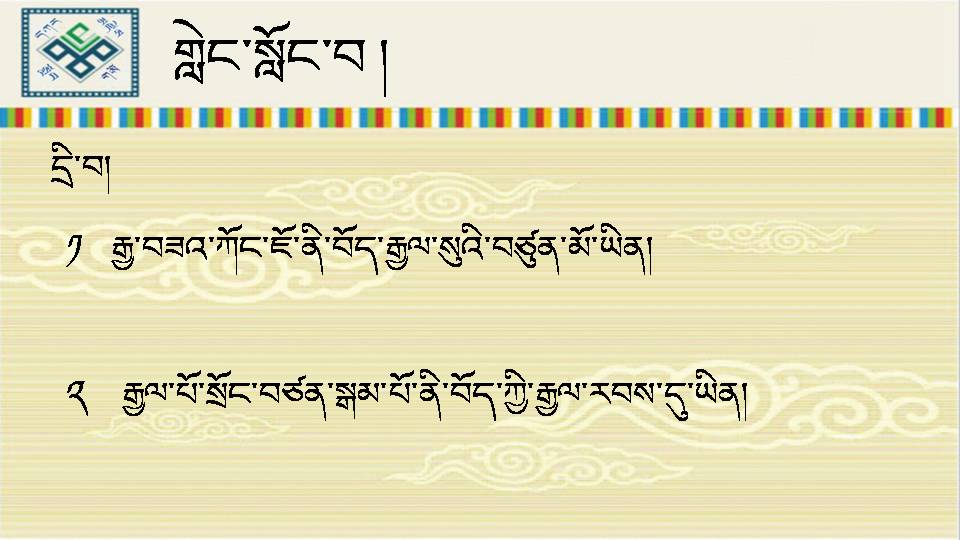 གླེང་སློང་བ །
དྲི་བ།
༡ རྒྱ་བཟའ་ཀོང་ཇོ་ནི་བོད་རྒྱལ་སུའི་བཙུན་མོ་ཡིན།
༢ རྒྱལ་པོ་སྲོང་བཙན་སྒམ་པོ་ནི་བོད་ཀྱི་རྒྱལ་རབས་དུ་ཡིན།